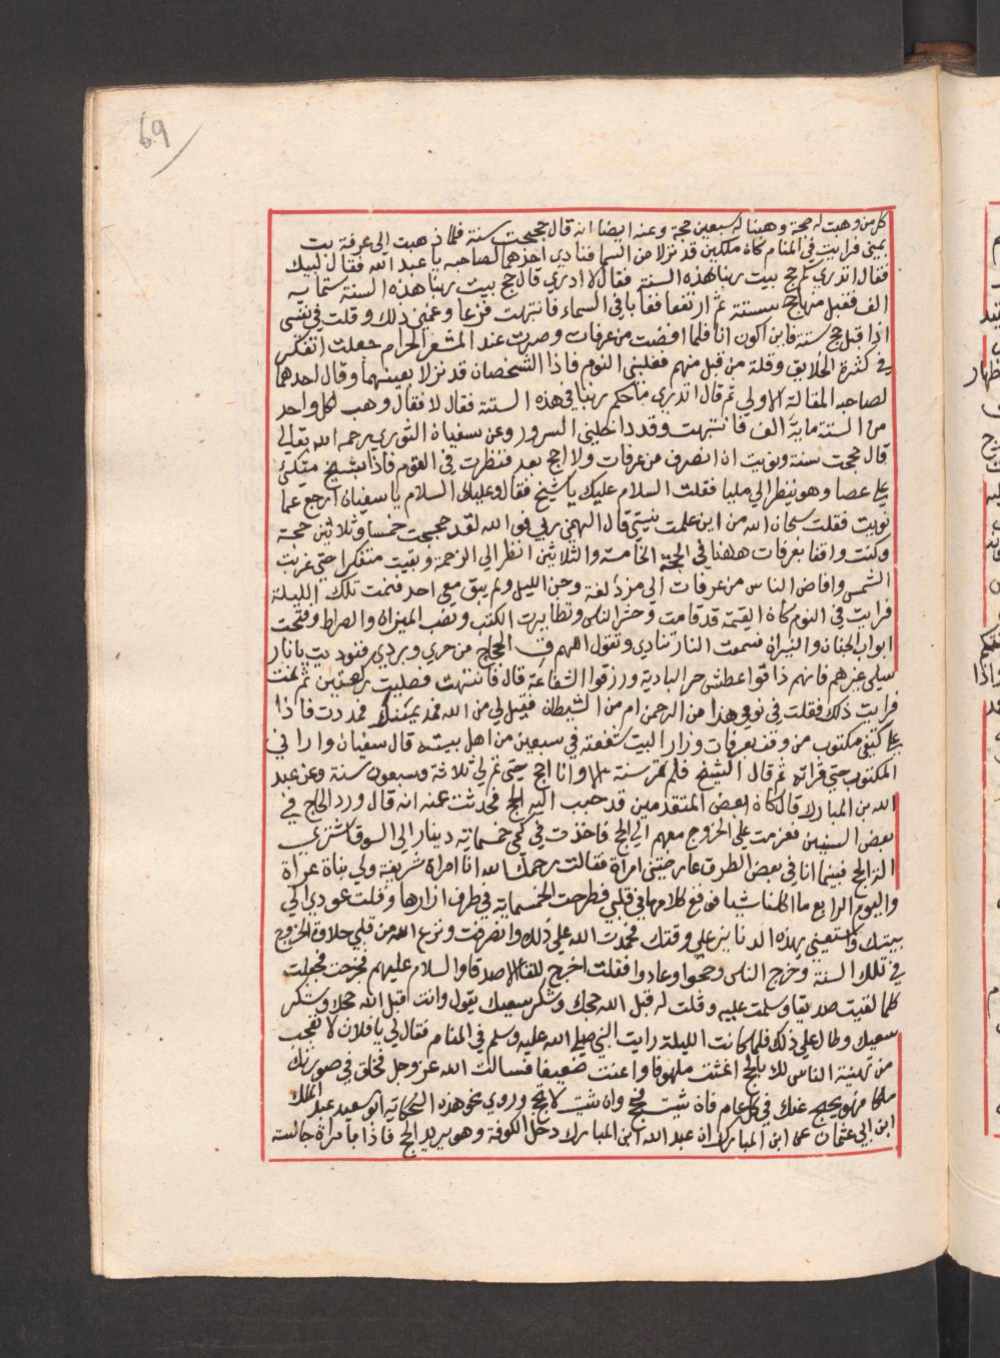 69
كل من وهبت له حجة وهبنا له سبعين حجة وعنه ايضا انه قال حججت سنة فلما ذهبت الى عرفة بت
بمنى فرايت في المنام كان ملكين قد نزلا من السما فنادي احدهما لصاحبه يا عبد الله فقال لبيك
فقال اتدري كم حج بيت ربنا هذه السنة فقال لا ادري قال حج بيت ربنا هذه السنة ستماية
الف فقبل منهم حج ستة ثم ارتفعا فغابا في السماء فانتبهت فزعا وغمني ذلك وقلت في نفسي
اذا قبل حج ستة فاين اكون انا فلما افضت من عرفات وصرت عند المشعر الحرام جعلت اتفكر
في كثرة الخلايق وقلة من قبل منهم فغلبني النوم فاذا الشخصان قد نزلا بعينهما وقال احدهما
لصاحبه المقالة الاولي ثم قال اتدري ماحكم ربنا في هذه الستة فقال لا فقال وهب لكل واحد
من الستة ماية الف فانتبهت وقد داخلني السرور وعن سفيان الثوري رحمه الله تعالي
قال حججت سنة ونويت ان انصرف من عرفات ولا احج بعد فنظرت في القوم فاذا بشيخ متكئ
على عصا وهو ينظر الي مليا فقلت السلام عليك يا شيخ فقال وعليك السلام يا سفيان ارجع عما
نويت فقلت سبحان الله من اين علمت بنيتي قال الهمني ربي فوالله لقد حججت خمسا وثلاثين حجة
وكنت واقفا بعرفات ههنا في الحجة الخامسة والثلاثين انظر الي الرحمة وبقيت متفكرا حتى غربت
الشمس وافاض الناس من عرفات الي مزدلفة وجن الليل ولم يبق معي احد فنمت تلك الليلة
فرايت في النوم كان القيمة قد قامت وحشر الناس وتطايرت الكتب ونصب الميزان والصراط وفتحت
ابواب الجنان والنيران فسمعت النار تنادي وتقول اللهم ق الحجاج من حري وبردي فنوديت يا نار
سلي غيرهم فانهم ذاقوا عطش حر البادية ورزقوا الشفاعة قال فانتبهت وصليت ركعتين ثم نمت
فرايت ذلك فقلت في نومي هذا من الرحمن ام من الشيطان فقيل لي من الله فمد يمينك فمددت فاذا
على كتفي مكتوب من وقف بعرفات وزار البيت شفعته في سبعين من اهل بيته قال سفيان واراني
المكتوب حتي قراته ثم قال الشيخ فلم تمر سنة الا وانا احج حتي تم لي ثلاثة وسبعون سنة وعن عبد
الله بن المبارك قال كان بعض المتقدمين قد حبب اليه الحج فحدثت عنه انه قال ورد الحاج في
بعض السنين فعزمت على الخروج معهم الي الحج فاخذت في كمي خمسماية دينار الي السوق اشتري
الة الحج فبينما انا في بعض الطرق عارضتني امراة فقالت رحمك الله انا امراة شريفة ولي بنات عراة
واليوم الرابع ما اكلنا شيا فوقع كلامها في قلبي فطرحت الخمسماية في طرف ازارها وقلت عودي الي
بيتك واستعيني بهذه الدنانير على وقتك فحمدت الله على ذلك وانصرفت ونزع الله من قلبي حلاوة الخروج
في تلك السنة وخرج الناس وحجوا وعادوا فقلت اخرج للقا الاصدقا والسلام عليهم فخرجت فجعلت
كلما لقيت صديقا وسلمت عليه وقلت له قبل الله حجك وشكر سعيك يقول وانت قبل الله حجك وشكر
سعيك وطال علي ذلك فلما كانت الليلة رايت النبي صلي الله عليه وسلم في المنام فقال لي يا فلان لا تعجب
من تهنية الناس لك بالحج اغثت ملهوفا واعنت ضعيفا فسالت الله عز وجل فخلق في صورتك
ملكا فهو يحج عنك في كل عام فان شيت فحج وان شيت لا تحج وروي نحو هذه الحكاية ابو سعيد عبد الملك
ابن ابي عثمان عن ابن المبارك ان عبد الله ابن المبارك دخل الكوفة وهو يريد الحج فاذا بامراة جالسة